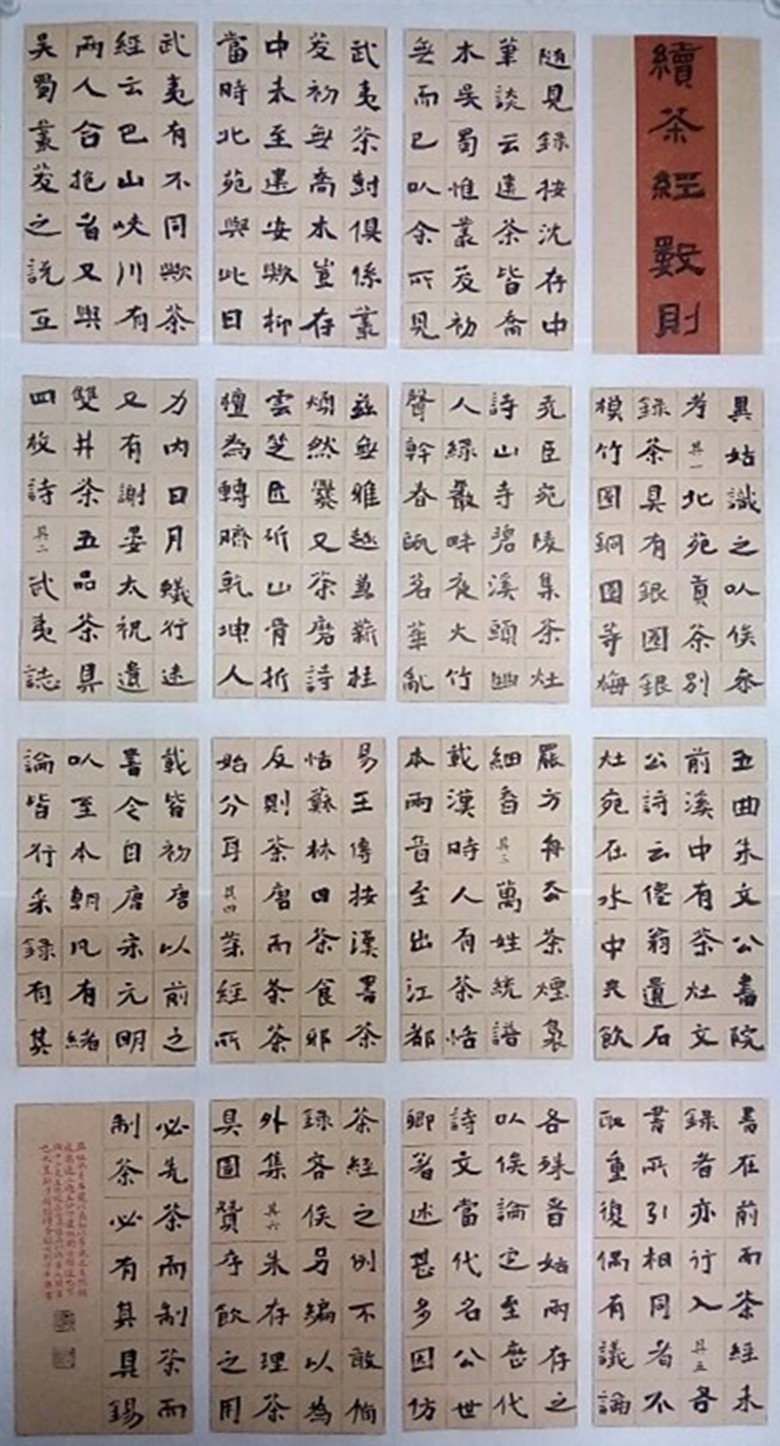 續茶經數則
隨見錄按沈存中
筆談云建茶皆喬
木吳蜀惟叢茇初
無而已以余所見
武夷茶樹俱係叢
茇初無喬木豈存
中未至建安歟抑
當時北苑與此日
武夷有不同歟茶
經云巴山峽川有
兩人合抱者又與
吳蜀叢茇之說互
異姑識之以俟參
考其一北苑貢茶別
錄茶具有銀圈銀
模竹圈銅圈等梅
堯臣宛陵集茶灶
詩山寺碧溪頭幽
人綠巖畔夜火竹
聲幹春甌茗華亂
茲無雅趣兼薪桂
煩然爨又茶磨詩
雲芝匠斫山骨折
檀為轉臍乾坤人
力內日月蟻行迷
又有謝晏太祝遺
雙井茶五品茶具
四枚詩其二武夷誌
五曲朱文公書院
前溪中有茶灶文
公詩云僊翁遺石
灶宛在水中央飲
罷方舟去茶煙裊
細香其三萬姓統譜
載漢時人有茶恬
本兩音至出江都
易王傳按漢書茶
恬蘇林曰茶食邪
反則茶唐而茶茶
始分耳其四茶經所
載皆初唐以前之
書令自唐宋元明
以至本朝凡有緒
論皆行采錄有其
書在前而茶經未
錄者亦行入其五各
書所引相同者不
取重復偶有議論
各殊音始兩存之
以俟論定至歷代
詩文當代名公世
卿著述甚多因仿
茶經之例不敢偹
錄容俟另編以為
外集其六朱存理茶
具圖贊序飲之用
必先茶而制茶而
制茶必有其具錫